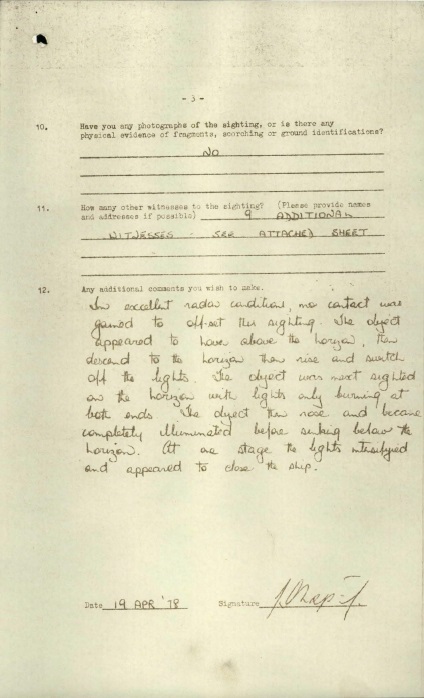 - 3 -
10. Have you any photographs of the sighting, or is there any
physical evidence of fragments, scorching or ground identifications?
NO
11. How many other witnesses to the sighting? (Please provide names
and addresses if possible) 9 ADDITIONAL
WITNESSES - SEE ATTACHED SHEET
12. Any additional comments you wish to make.
In excellent radar condition, no contact was
gained to off-set this sighting. The object
appeared to hover above the horizon, then
descend to the horizon then rise and switch
off the lights. The object was next sighted
on the horizon with lights only burning at
both ends. The object then rose and became
completely illuminated before sinking below the
horizon. At one stage the lights intensifyed
and appeared to close the ship.
Date 19 APR '78 Signature